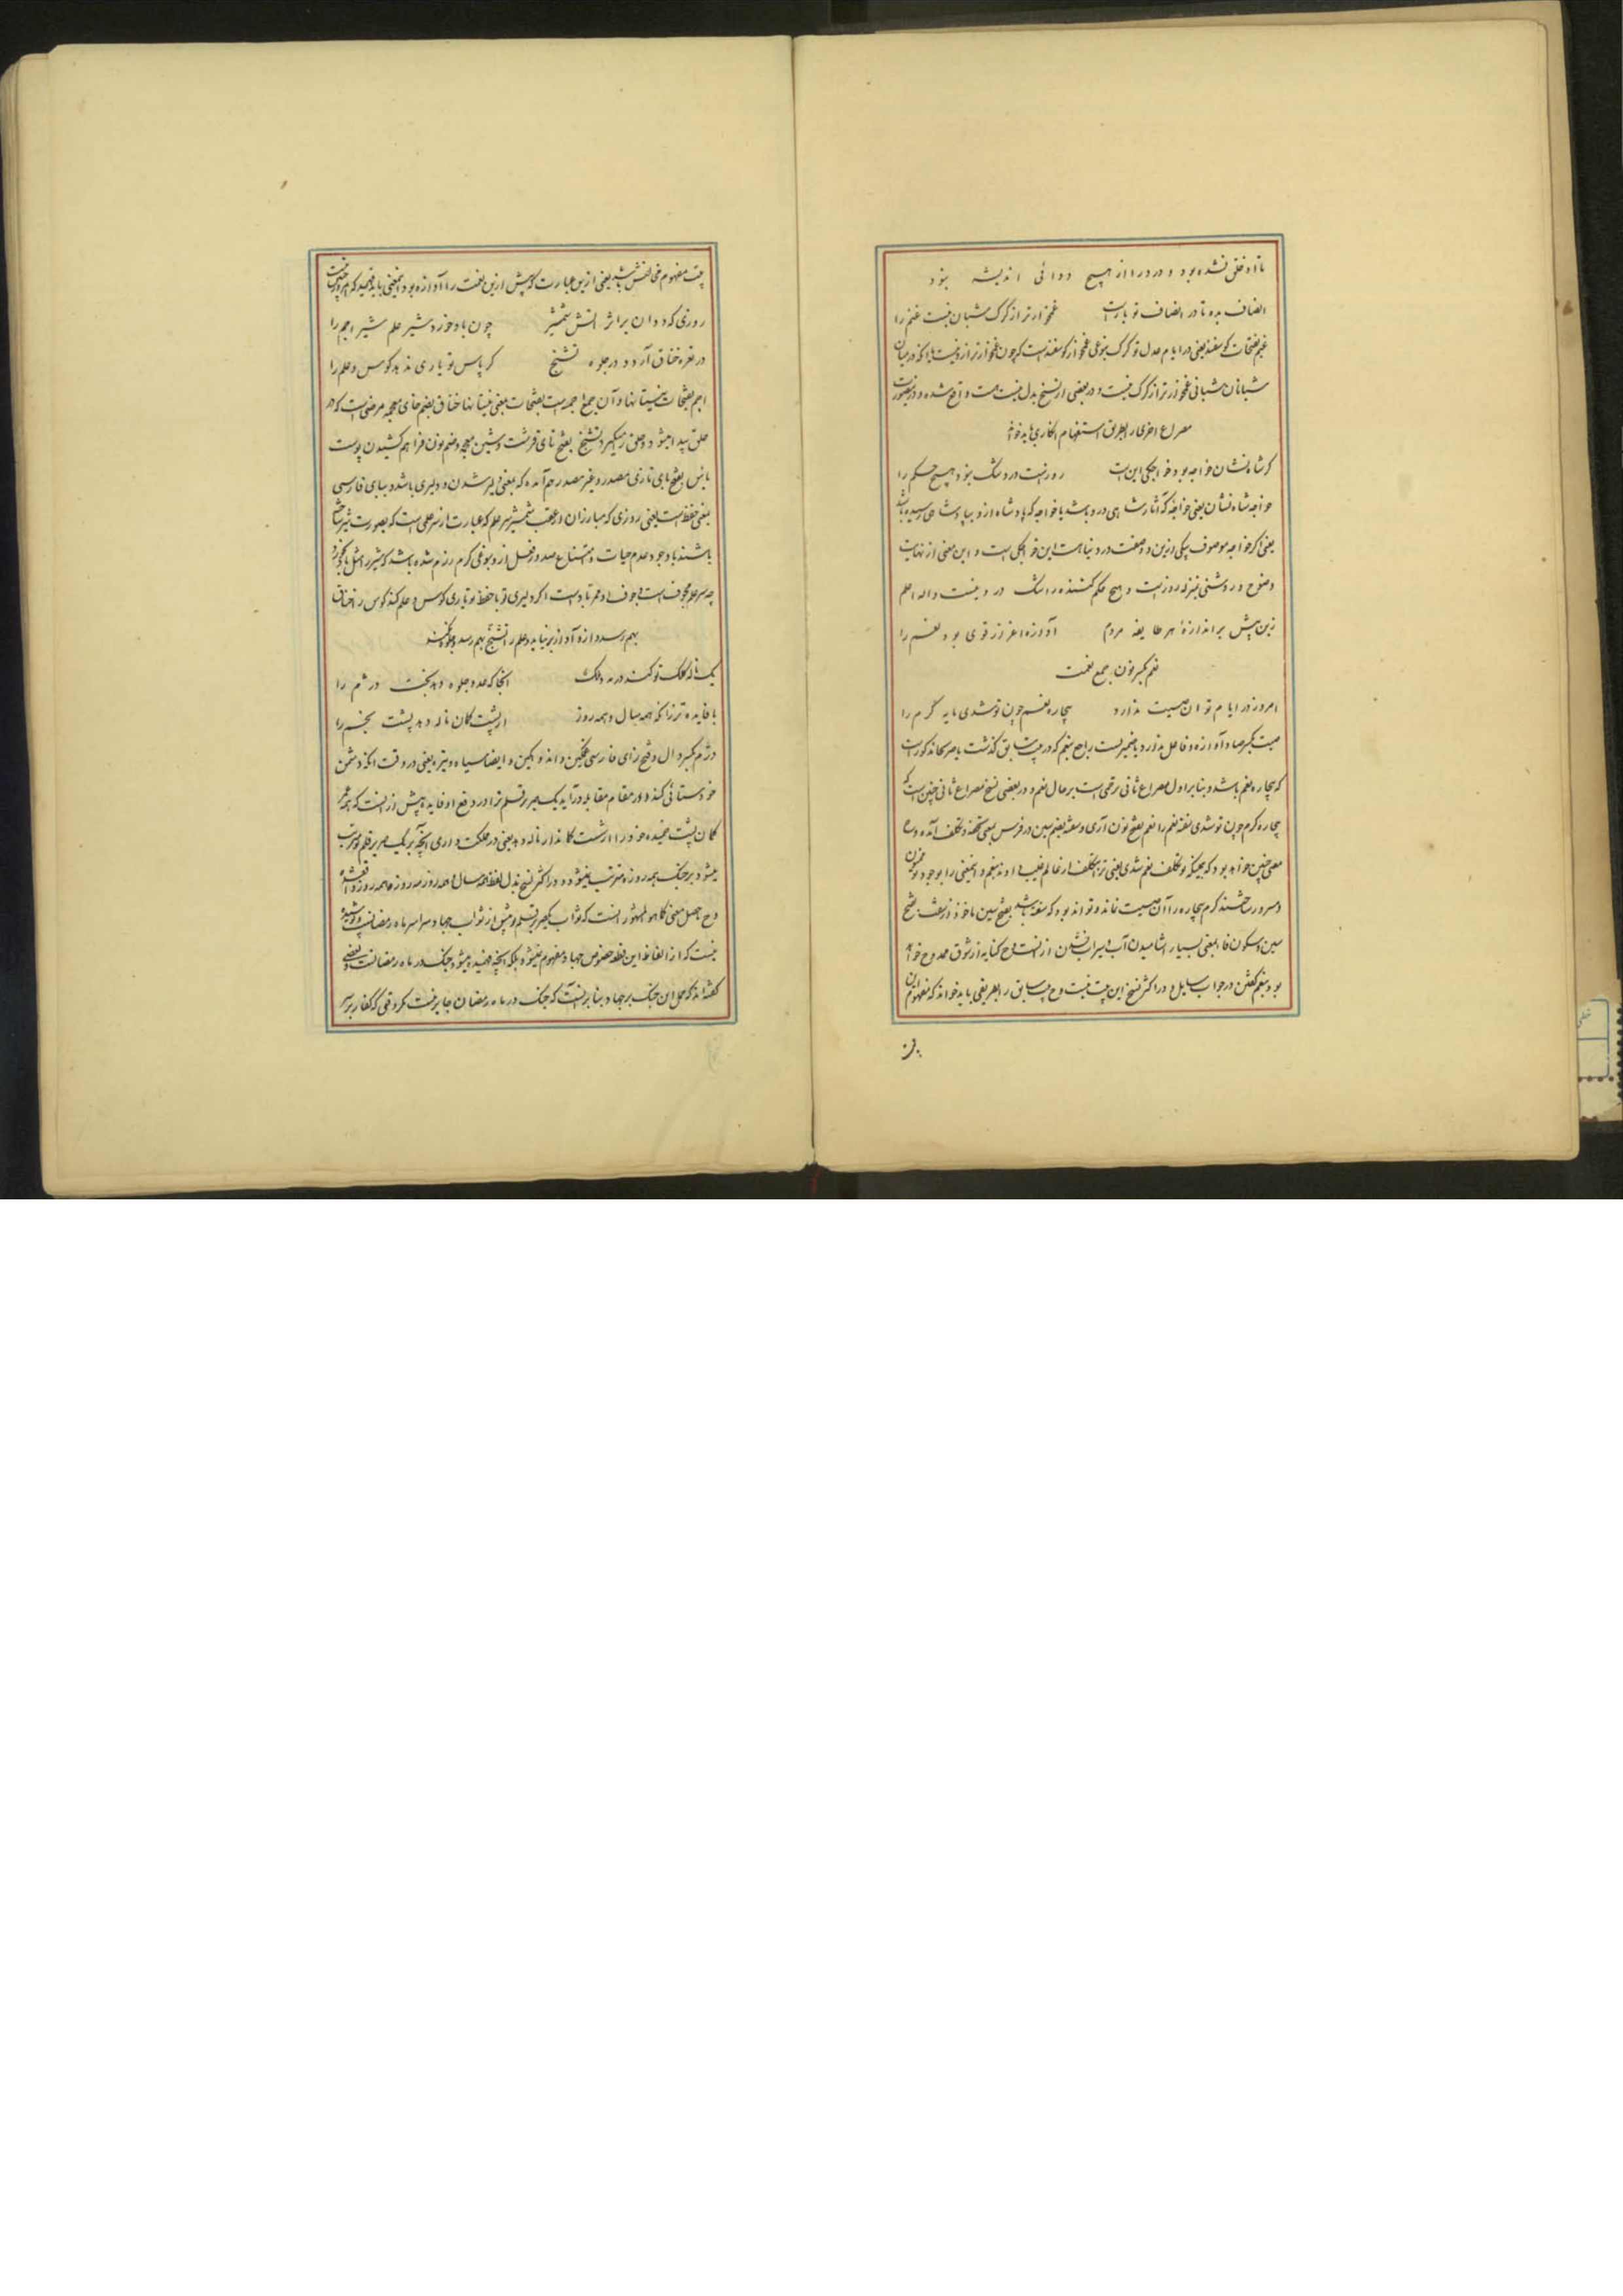 تا او خلق نشده بود و درد را از هیچ دوائی اندیشه نبود
انصاف بده تا در انصاف تو بازست غمخوارتر از گرگ شبان نیست غنم را
غنم بفتحات گوسفند یعنی در ایام عدل تو گرگ بنوعی غمخوار گوسفندست که چون غمخوارتر ازو نیست
شبانان شبانی غمخوارتر از گرگ نیست و در بعضی از نسخ بدل نیست هست واقع شده و درینصورت
مصراع اخری را بطریق استفهام انکاری باید خواند
گر شاه نشان خواجه بود خواجگی اینست روزیست در و شک نبود هیچ حکم را
خواجه شاه نشان یعنی خواجه که آثار شاهی درو باشد یا خواجه که پادشاه ازو بپادشاهی رسیده باشد
یعنی اگر خواجه موصوف بیکی ازین دو صفت در دنیا هست این خواجگی است و این معنی از نهایت
وضوح و روشنی بمنزله روزیست و هیچ حکم کننده را شک درو نیست والله اعلم
زین پیش بر اندازهٔ هر طایفه مردم آوازه اعزاز قوی بود نعم را
نعم بکسر نون جمع نعمت
امروز در ایام تو آن صیت ندارد بیچاره نعم چون تو شدی مایه کرم را
صیت بکسر صاد آوازه و فاعل ندارد یا ضمیریست راجع بنعم که در بیت سابق گذشت یا صریحا مذکورست
که بیچاره نعم باشد و بنابر اول مصراع ثانی ترحمی است بر حال نعم و در بعضی نسخ مصراع ثانی چنین است که
بیچاره کرم چون تو شدی سفته نعم را نعم بفتح نون آری و سفته بضم سین در فرس بمعنی تحفه و تکلف آمده و
معنی چنین خواهد بود که چونکه تو تکلف نعم شدی یعنی ترا بتکلف از عالم غیب دادند بنعم و اینمعنی را بوجود تو ممنون
و مسرور ساختند کرم بیچاره را آن صیت نماند و تواند بود که سفته باشد بفتح سین ماخوذ از سفت بفتح
سین و سکون فا بمعنی بسیار آشامیدن آب و سیراب نشدن ازو و این کنایه از شوق ممدوح خواهد
بود بنعم گفتن در جواب سایل و در اکثر نسخ این بیت نیست و بیت سابق را بطریقی باید خواند که مفهوم این
بیت
بیت مفهوم مخالفش باشد یعنی ازین عبارت که پیش ازین نعمت را آوازه بود اینمعنی باید فهمید که امروز نیست
روزی که دوان بر اثر آتش شمشیر چون باد خورد شیر علم شیر اجم را
در نعره خناق آرد و در جلوه تشنج گر پاس تو یاری ندهد کوس و علم را
اجم بفتحات نیستانها و آن جمع اجمه است بفتحات بمعنی نیستانها خناق بضم خای معجمه مرضی است که در
حلق پیدا میشود و حلق را میگیرد تشنج بفتح تای قرشت و شین معجمه و ضم نون فراهم کشیدن پوست
باس بفتح بای تازی مصدر و غیر مصدر هم آمده که بمعنی دلیر شدن و دلیری باشد و ببای فارسی
بمعنی حفظ است یعنی روزی که مبارزان از عقب شمشیر شیر علم که عبارت از شیر علمی است که بصورت شیر ساخته
باشند با وجود عدم حیات و امتناع صدور فعل ازو بنوعی گرم رزم شده باشد که شیر را مثل باد بخورد
چه شیر علم مجوف است و جوف او ممر باد است اگر دلیری تو یا حفظ تو یاری کوس و علم نکند کوس را خناق
بهم رسد و ازو آواز بر نیاید و علم را تشنج بهم رسد و جلوه نکند
یک ناله کلک تو کند در مدد ملک آنجا که عدو جلوه دهد بخت دژم را
با فایده تر زانکه همه سال و همه روز از پشت کمان ناله دهد پشت بخم را
دژم بکسر دال و فتح زای فارسی غمگین و اندوهگین و ایضا سیاه و تیره یعنی در وقت آنکه دشمن
خودستائی کند و در مقام مقابله درآید یک صریر قلم ترا در دفع او فایده بیش از آنست که همه عمر
کمان پشت خمیده خود را از شست کماندار ناله دهد یعنی در مملکت داری آنچه بر یک صریر قلم تو مترتب
میشود بر جنگ همه روزه مترتب نمیشود و در اکثر نسخ بدل لفظ همه سال و همه روز سه روزه و همه روزه واقع شده
و حاصل معنی کما هو المشهور آنست که ثواب یک صریر قلم تو بیش از ثواب جهاد سراسر ماه رمضانست و پوشیده
نیست که از الفاظ این قطعه خصوص جهاد مفهوم نمیشود بلکه آنچه فهمیده میشود جنگ در ماه رمضانست و بعضی
گفته اند که حمل این جنگ بر جهاد بنا بر آنست که جنگ در ماه رمضان جایز نیست مگر وقتی که کفار بر سر